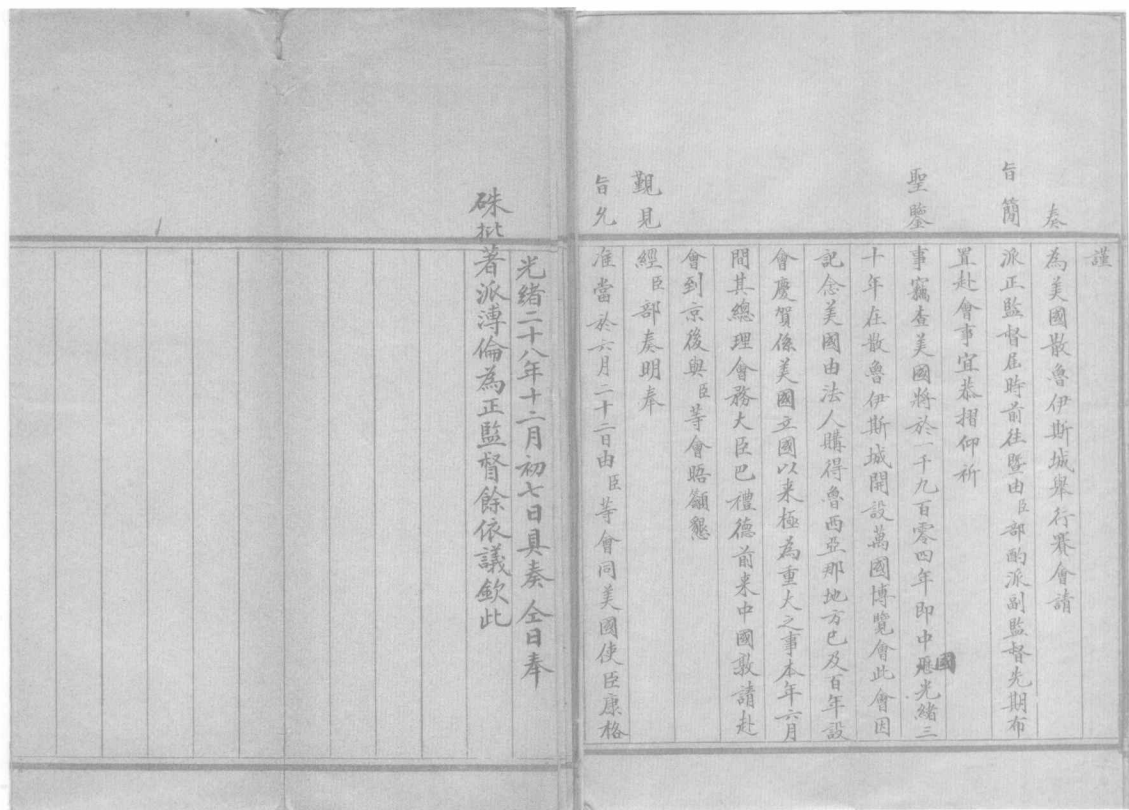 謹
奏為美國散魯伊斯城舉行賽會請
旨簡派正監督屆時前往暨由臣部酌派副監督先期布
置赴會事宜恭摺仰祈
聖鑒事竊查美國將於一千九百零四年即中國光緒三
十年在散魯伊斯城開設萬國博覽會此會因
記念美國由法人購得魯西亞那地方已及百年設
會慶賀係美國立國以來極為重大之事本年六月
間其總理會務大臣巴禮德前來中國敦請赴
會到京後與臣等會晤籲懇
覲見經臣部奏明奉
旨允准當於六月二十二日由臣等會同美國使臣康格
光緒二十八年十二月初七日具奏 仝日奉
硃批著派溥倫為正監督餘依議欽此